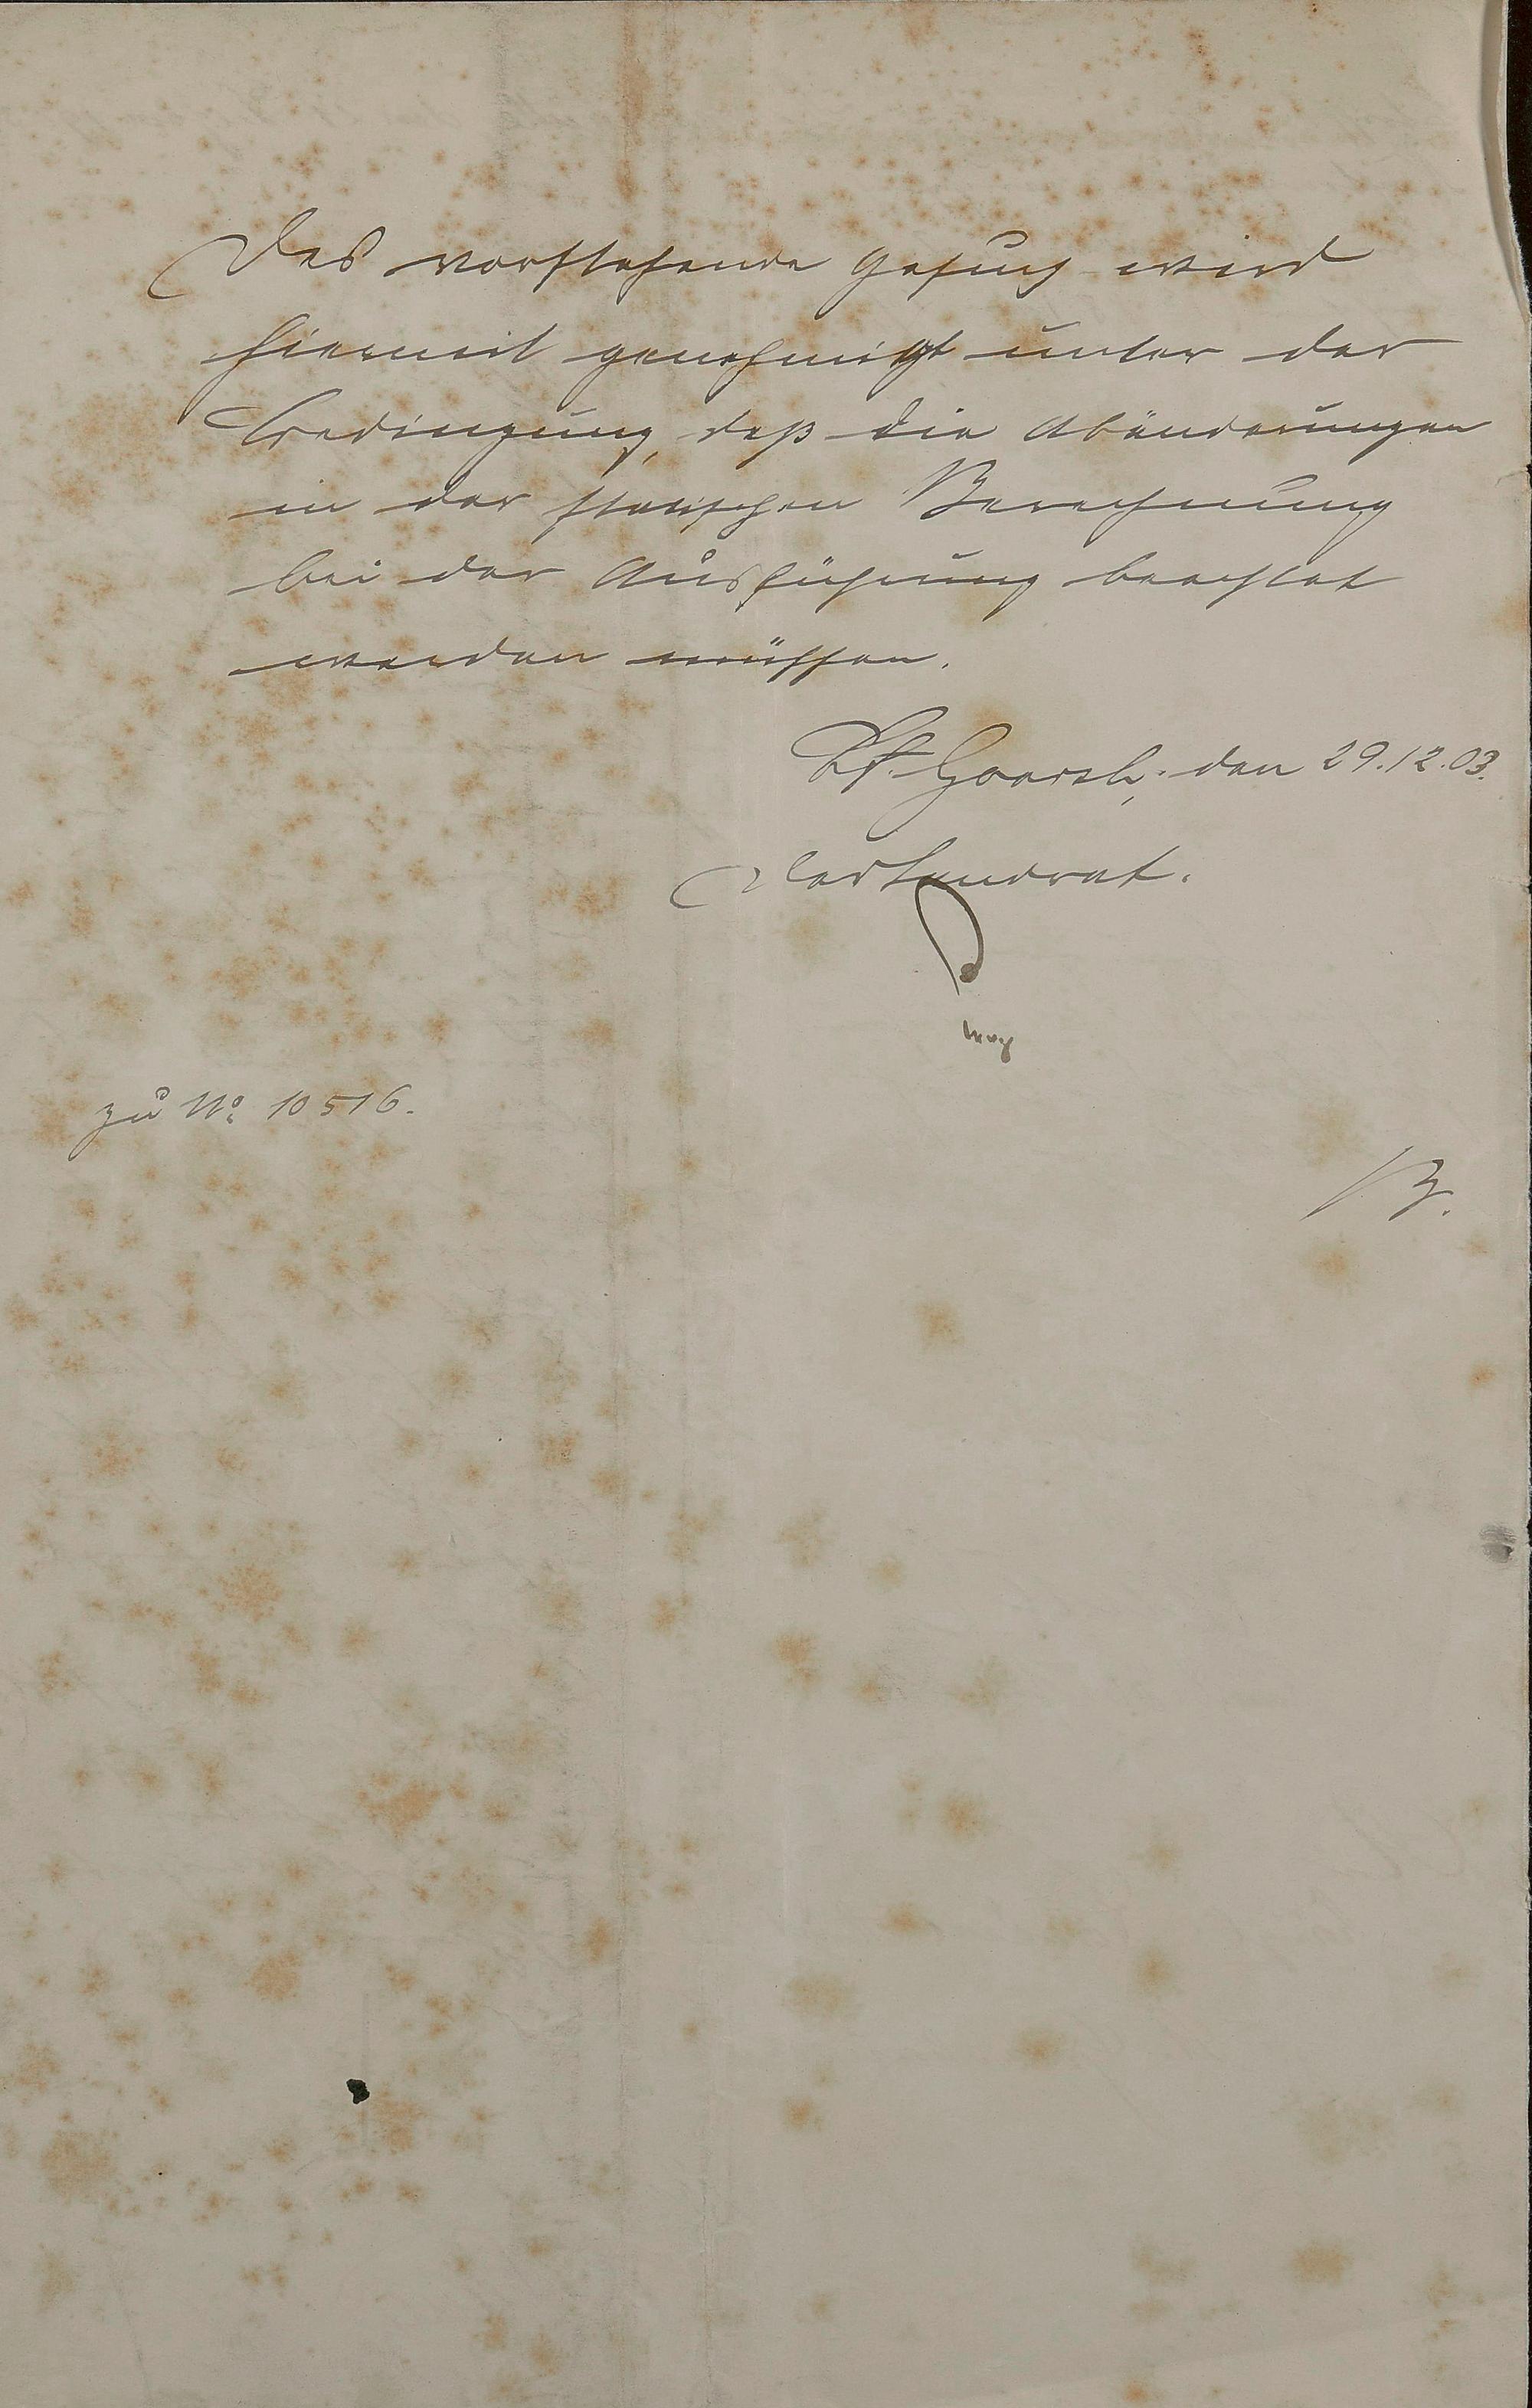 Das vorstehende Gesuch wird
hiermit genehmigt unter der
Bedingung, daß die Abänderungen
in der statischen Berechnung
bei der Ausführung beachtet
werden müssen.
St. Goarsh., den 29.12.03.
Der Landrat.
zu No. 10516.